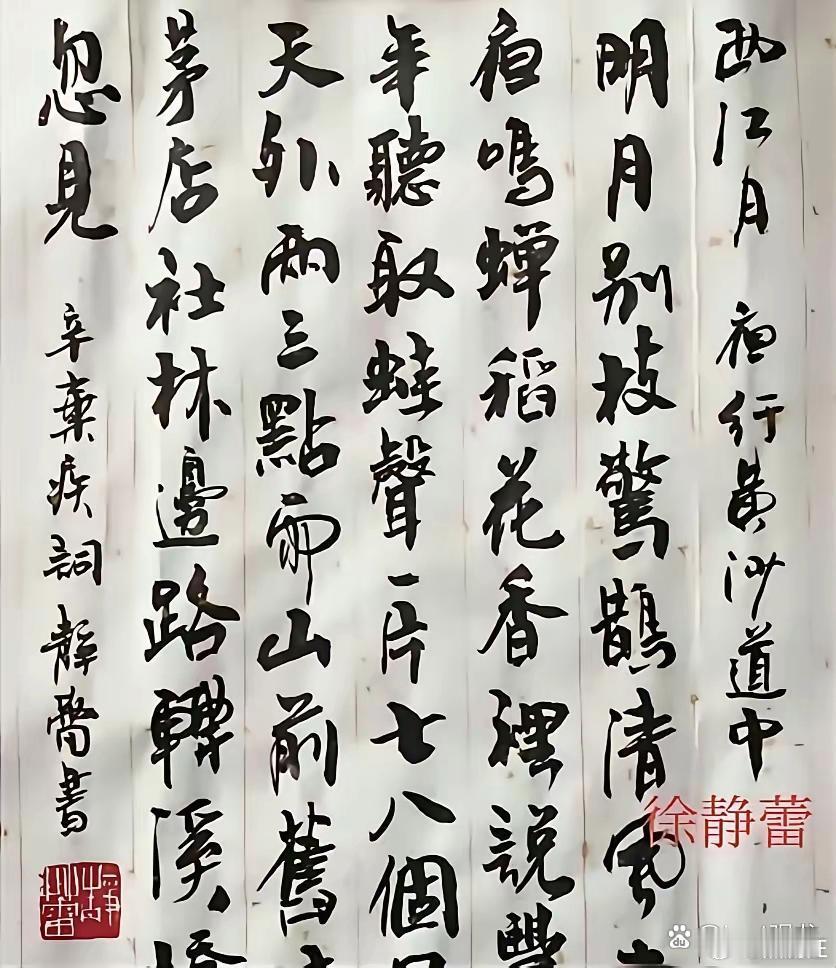 西江月 夜行黄沙道中
明月别枝驚鵲清風
夜鳴蝉稻花香裡説豐
年聽取蛙聲一片七八個
天外兩三點雨山前舊
茅店社林邊路轉溪橋
忽見 辛棄疾詞 靜蕾書
静蕾
徐静蕾
du